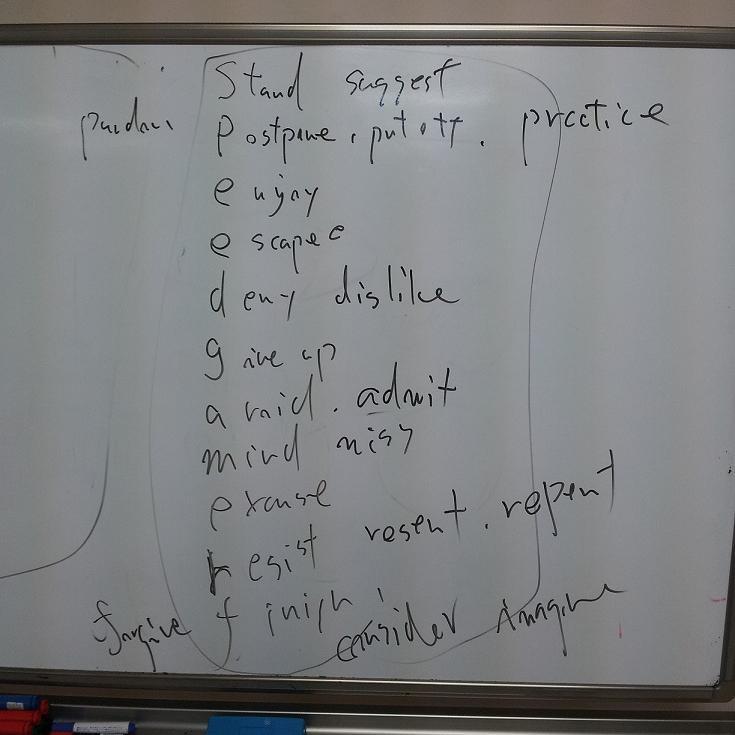 Stand suggest
pardon Postpone, put off, practice
enjoy
escape
deny dislike
give up
avoid. admit
mind miss
excuse
resist resent. repent
forgive finish, consider imagine